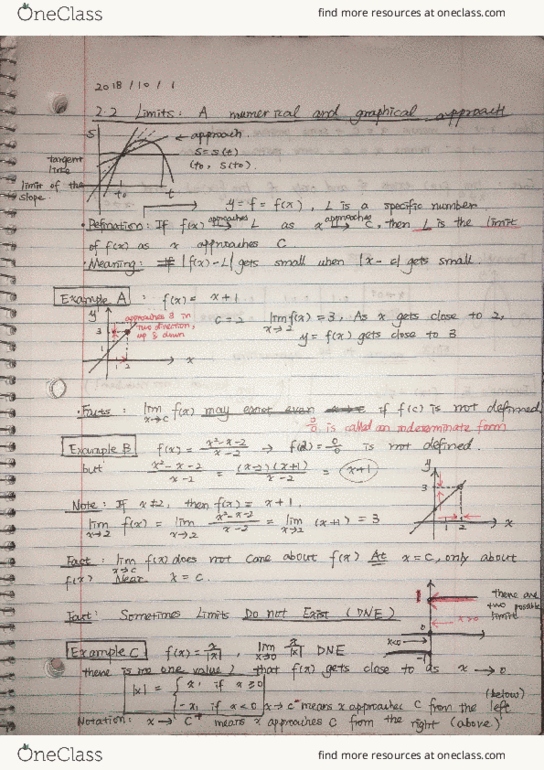 OneClass
find more resources at oneclass.com
2018/10/1
2.2 Limits: A numerical and graphical approach
S
approach.
S = S(t)
(t₀, S(t₀))
tangent line
limit of the slope
t₀ t
y = f = f(x), L is a specific number
• Defination: If f(x) approaches → L as x approaches → C, then L is the limit
of f(x) as x approaches C.
• Meaning: |f(x) - L| gets small when |x - c| gets small.
Example A : f(x) = x+1
y
approaches 3 in two direction, up & down
3
1
1 2
x
c = 2 lim x→2 f(x) = 3, As x gets close to 2,
y = f(x) gets close to 3
• Facts : lim x→c f(x) may exist even if f(c) is not defined
0/0 is called an indeterminate form
Example B f(x) = x²-x-2 / x-2 → f(2) = 0/0 is not defined.
but x²-x-2 / x-2 = (x-2)(x+1) / x-2 = x+1
y
3
1 2
x
Note: If x≠2, then f(x) = x+1.
lim x→2 f(x) = lim x→2 x²-x-2 / x-2 = lim x→2 (x+1) = 3
Fact: lim x→c f(x) does not care about f(x) At x=c, only about
f(x) Near x = c.
1
there are two possible limits
x>0
0
x<0
-1
Fact: Sometimes Limits Do not Exist (DNE)
Example C f(x) = x/|x| , lim x→0 x/|x| DNE
there is no one value L that f(x) gets close to as x → 0
|x| = { x, if x ≥ 0
-x, if x < 0
x → c⁻ means x approaches C from the left (below)
Notation: x → c⁺ means x approaches C from the right (above)
OneClass
find more resources at oneclass.com